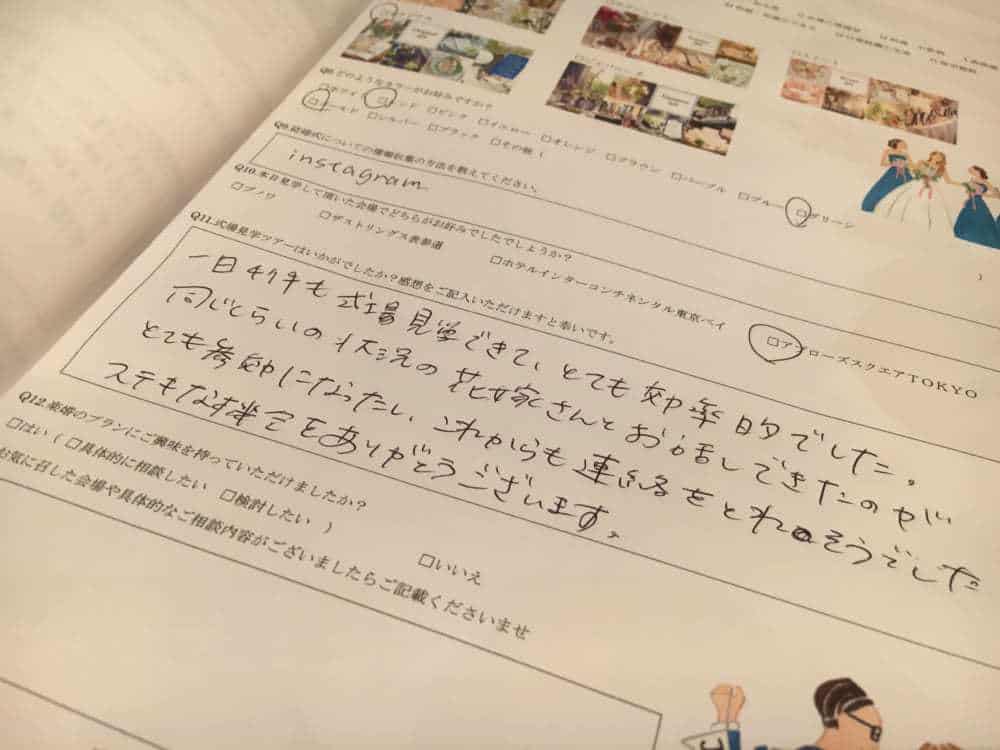 Q8.どのようなカラーがお好みですか?
□ホワイ □レッド □ピンク □イエロー □オレンジ □ブラウン □パープル □ブルー □グリーン
□ゴールド □シルバー □ブラック □その他 ( )
Q9.結婚式についての情報収集の方法を教えてください。
instagram
Q10.本日見学して頂いた会場でどちらがお好みでしたでしょうか?
□ブノワ □ザストリングス表参道 □ホテルインターコンチネンタル東京ベイ □アンローズスクエアTOKYO
Q11.式場見学ツアーはいかがでしたか?感想をご記入いただけますと幸いです。
一日に何件も式場見学できて、とても効率的でした。
同じくらいの状況の花嫁さんとお話しできたのが
とても参考になったし、これからも連絡をとれそうでした
ステキな機会をありがとうございます。
Q12.楽婚のプランにご興味を持っていただけましたか?
□はい ( □具体的に相談したい □検討したい ) □いいえ
お気に召した会場や具体的なご相談内容がございましたらご記載くださいませ